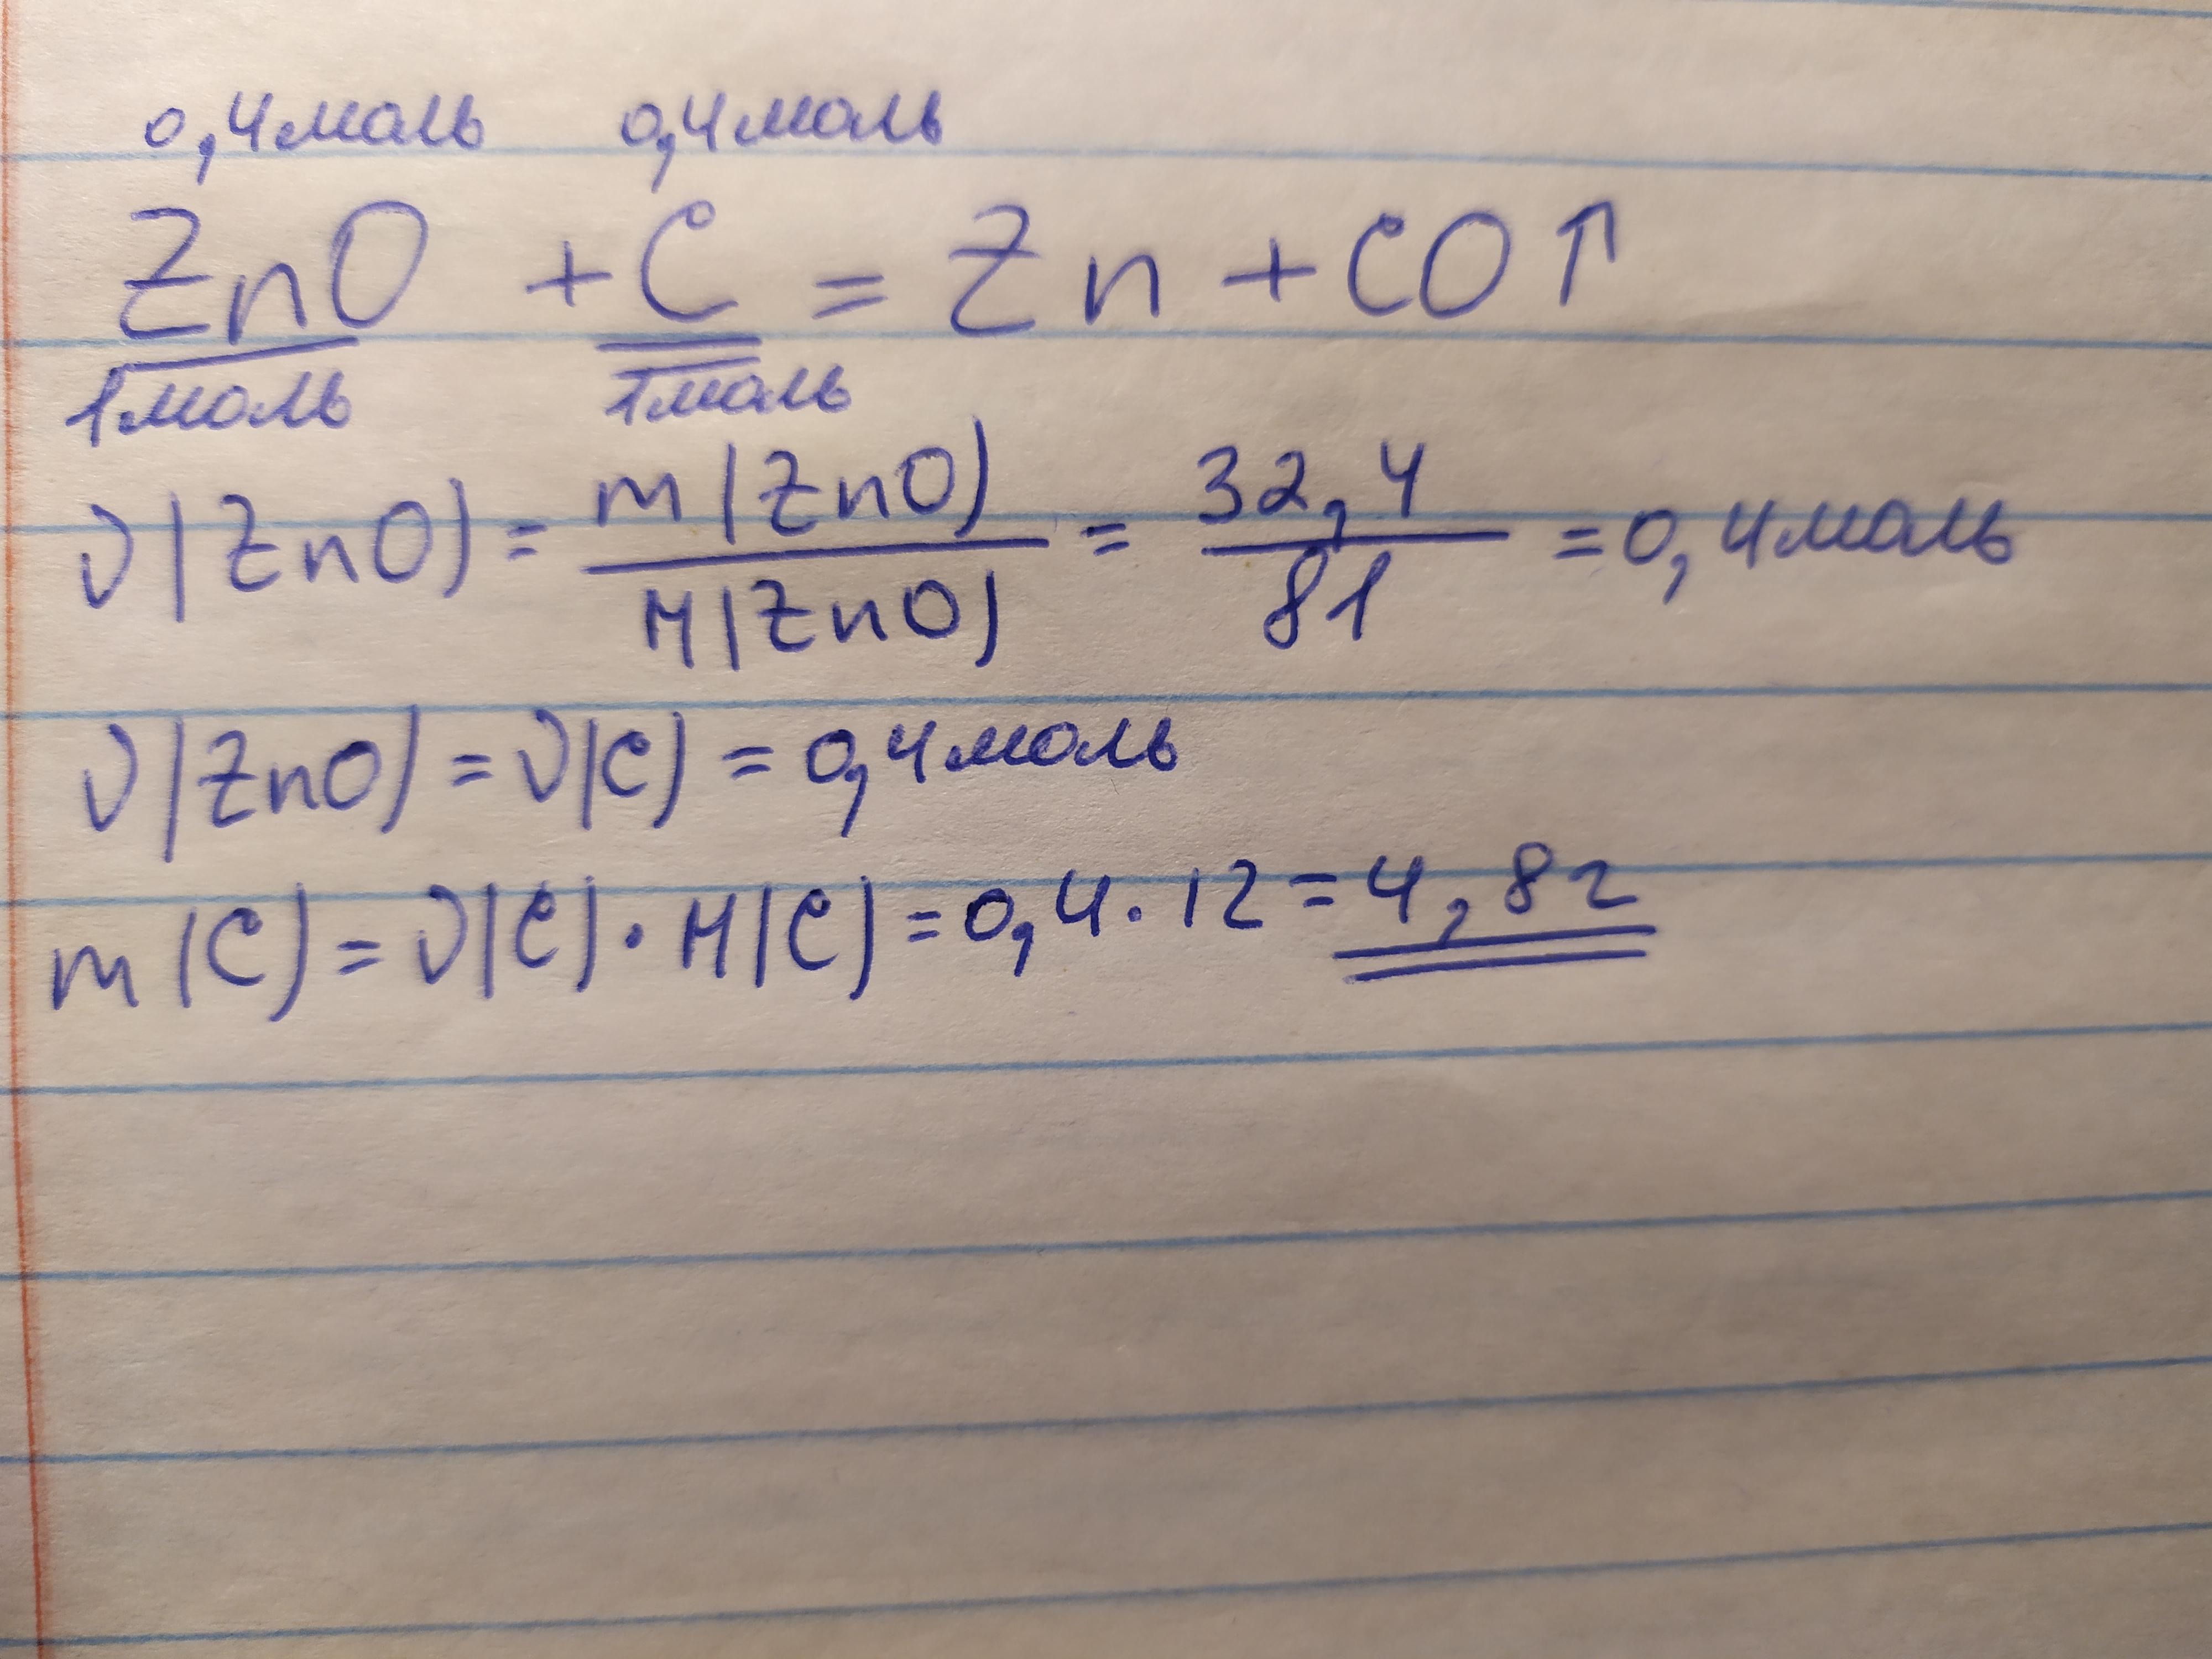 0,4моль 0,4моль
ZnO + C = Zn + CO↑
1моль 1моль
ν(ZnO) = m(ZnO) / M(ZnO) = 32,4 / 81 = 0,4моль
ν(ZnO) = ν(C) = 0,4моль
m(C) = ν(C) · M(C) = 0,4 · 12 = 4,8г